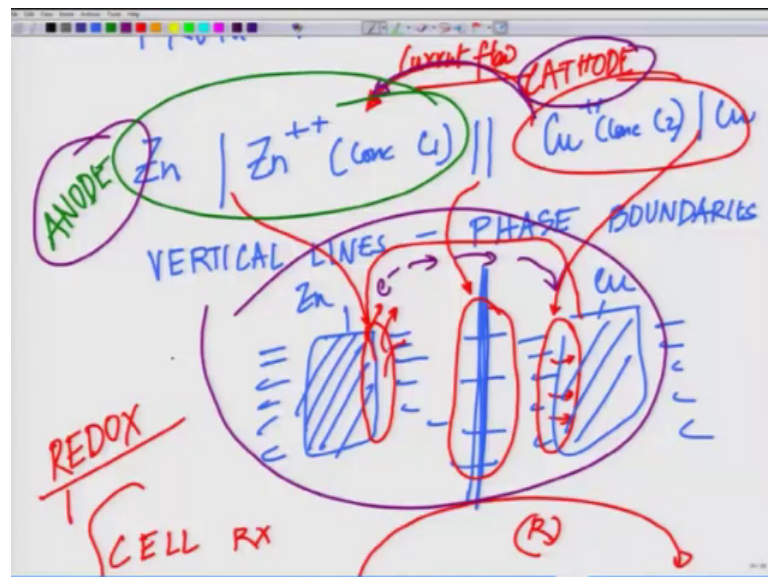 Current flow
CATHODE
ANODE
Zn | Zn++ (Conc C1) || Cu++ (Conc C2) | Cu
VERTICAL LINES - PHASE BOUNDARIES
Zn
e-
Cu
REDOX
CELL RX
(R)